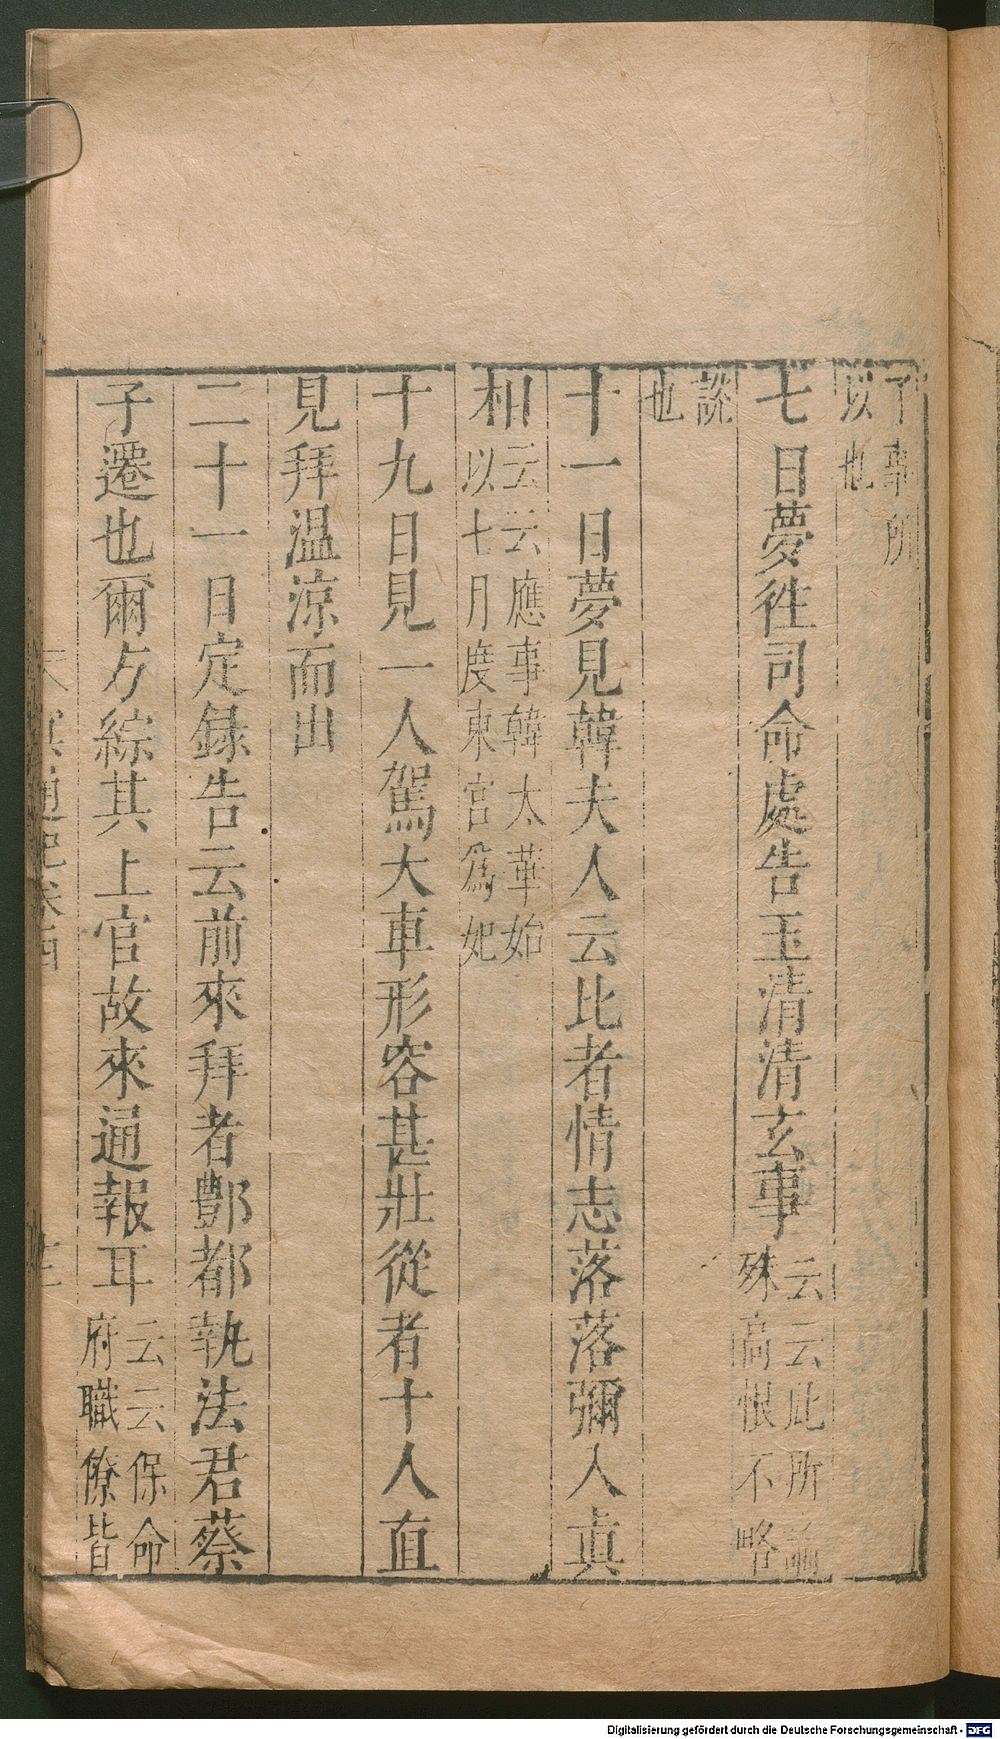 了事所
以也
七日夢徃司命處告玉清清玄事
云云此所論
殊高恨不略
說
也
十一日夢見韓夫人云比者情志落落彌入眞
相
云云應事韓太華始
以七月度東宮爲妃
十九日見一人駕大車形容甚壯從者十人直
見拜温涼而出
二十一日定録告云前來拜者酆都執法君蔡
子遷也爾方綜其上官故來通報耳
云云保命
府職僚皆
冥通記卷四
Digitalisierung gefördert durch die Deutsche Forschungsgemeinschaft - DFG